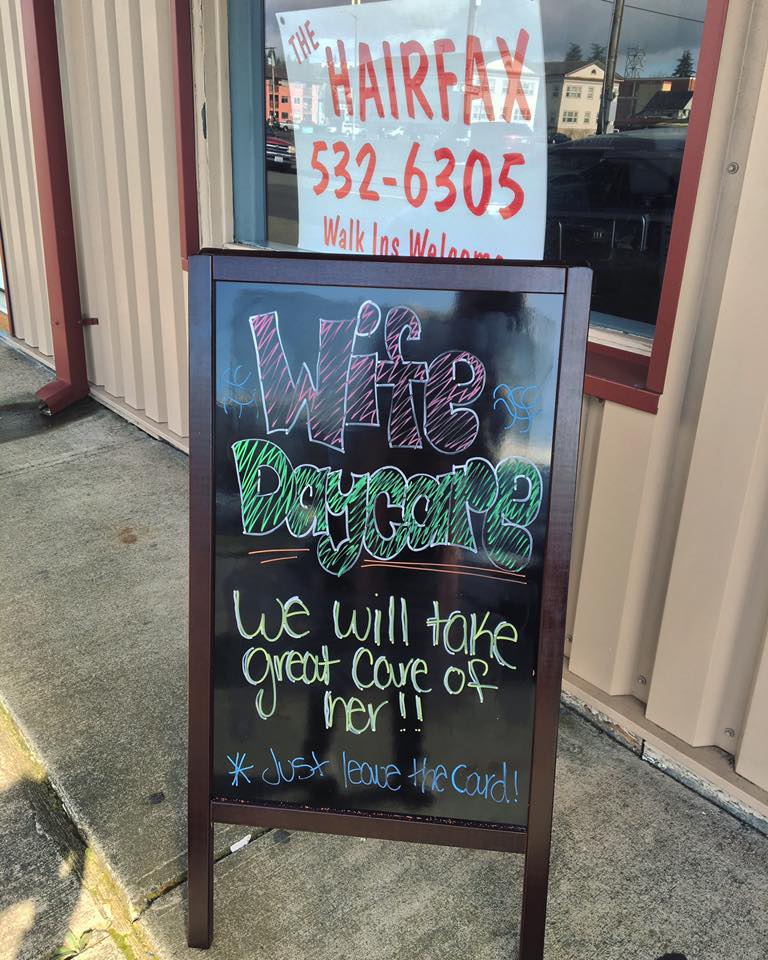 THE
HAIRFAX
532-6305
Walk Ins Welcome
Wife
Daycare
We will take
great care of
her!!
* Just leave the card!